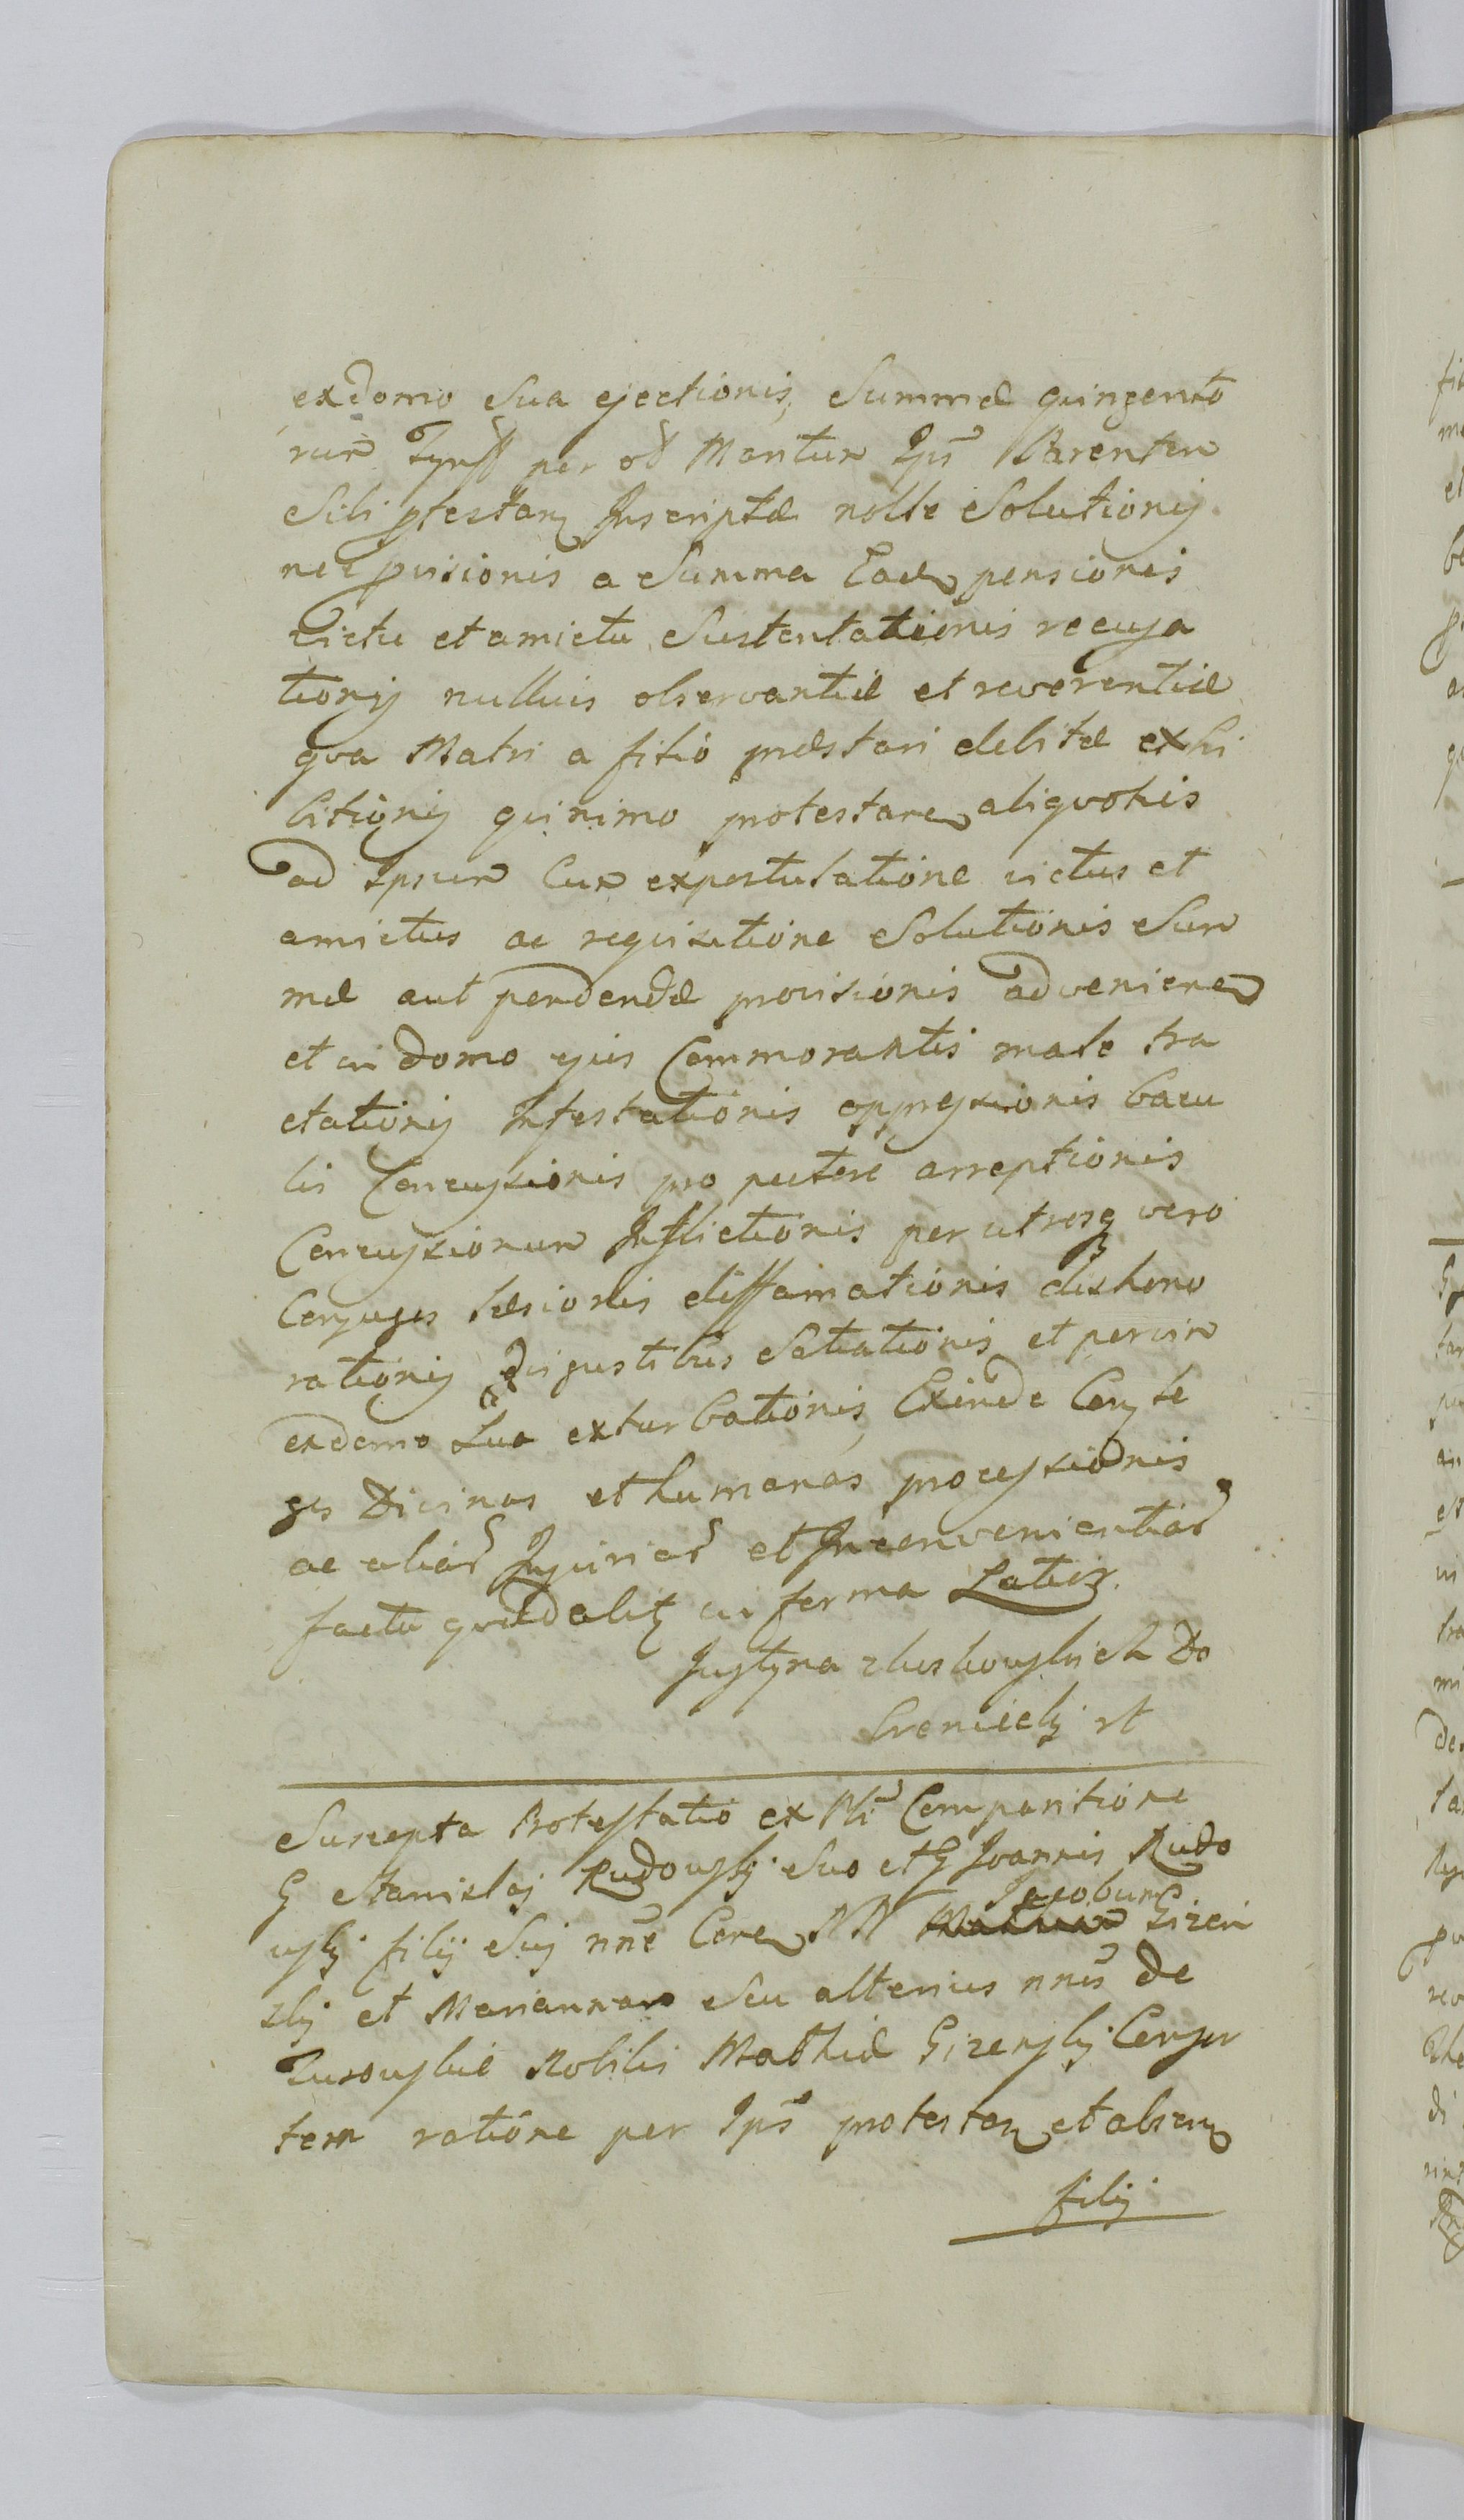 ex domo Sua ejectionis, Summæ quingento
rum Tynff per od Maritum Ips Parentem
Sibi ptestan Inscriptæ nolle Solutionis
nec pvisionis a Summa Eadem pensionis
victu et amictu Sustentationis recusa
tionis nullius observantiæ et reverentiæ
qva Matri a filio præstari debitæ exhi
bitionis quinimo protestarem aliqvoties
ad Ipsum Cum expostulatione victus et
amictus ac requisitione Solutionis Sum
mæ aut pendendæ provisionis advenien
et in domo ejus Commorantis male tra
ctationis Infestationis oppressionis bacu
lis Concussionis pro pectore arreptionis
Concussionum Inflictionis per utrosq vero
Conjuges læsionis diffamationis dishono
rationis disgustibus Satiationis et per vim
ex domo Sua exturbationis, Exinde Con le
ges Divinas et humanas processionis
ac alias Injurias et Inconvenientias
factu qvæd alit in forma Latior.
Justyna
Suscepta Protestatio ex Pli Comparitione
G Stanislai Rudowski Suo et G Joannis Rudo
wski filij Sui nne Coram NN Jacobum Gizen
ski et Mariannam Seu alterius nnis de
Turowskie Nobilis Mathiæ Gizenski Conjun
tem ratione per Ips protestan et absen
filij